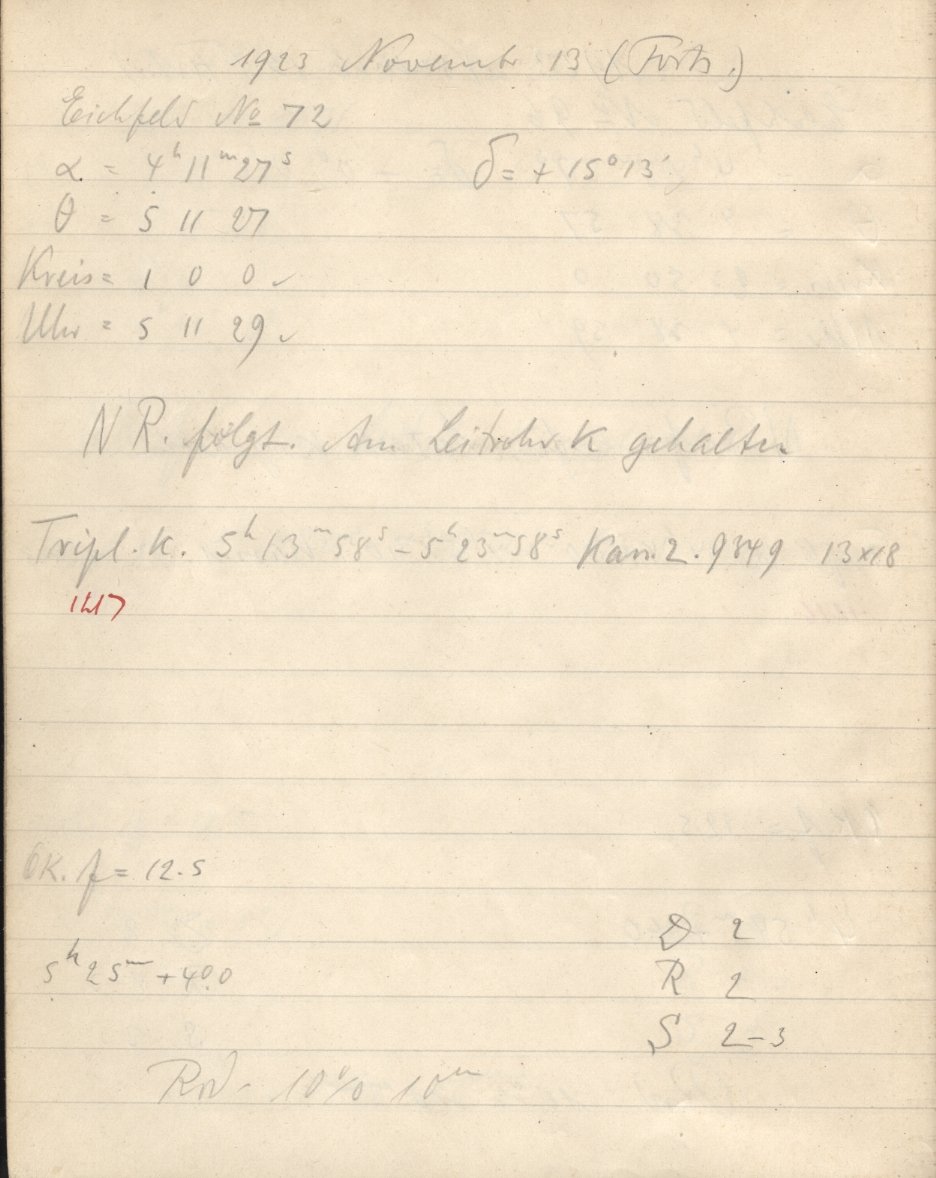 1923 November 13 (Forts.)
Eichfeld No 72
α = 4ʰ 11ᵐ 27ˢ δ = + 15° 13'
θ = 5 11 27
Kreis = 1 0 0 ✓
Uhr = 5 11 29 ✓
N R. folgt. Am Leitrohr K gehalten
Tripl. K. 5ʰ 13ᵐ 58ˢ – 5ʰ 23ᵐ 58ˢ Kam. 2 . 9349 13×18
Ok. f = 12.5
5ʰ 25ᵐ + 4°.0
D 2
R 2
S 2–3
Rod. 10% 10ᵐ